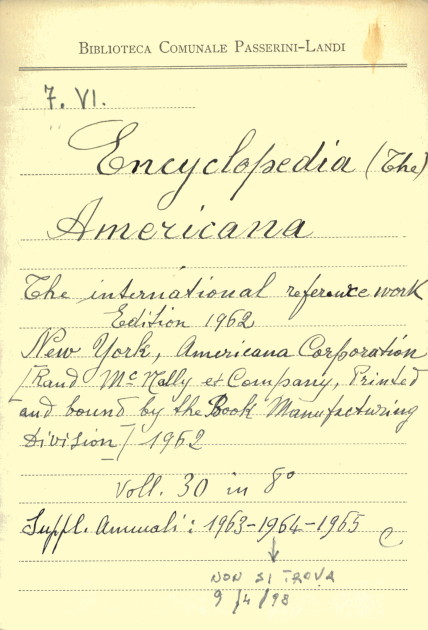 Biblioteca Comunale Passerini-Landi
7. VI.
Encyclopedia (The)
Americana
The international reference work
Edition 1962
New York, Americana Corporation
[Rand Mc Nally et Company, Printed
and bound by the Book Manufacturing
Division] 1962
Voll. 30 in 8°
Suppl. Annuali: 1963-1964-1965
C
NON SI TROVA
9/4/98